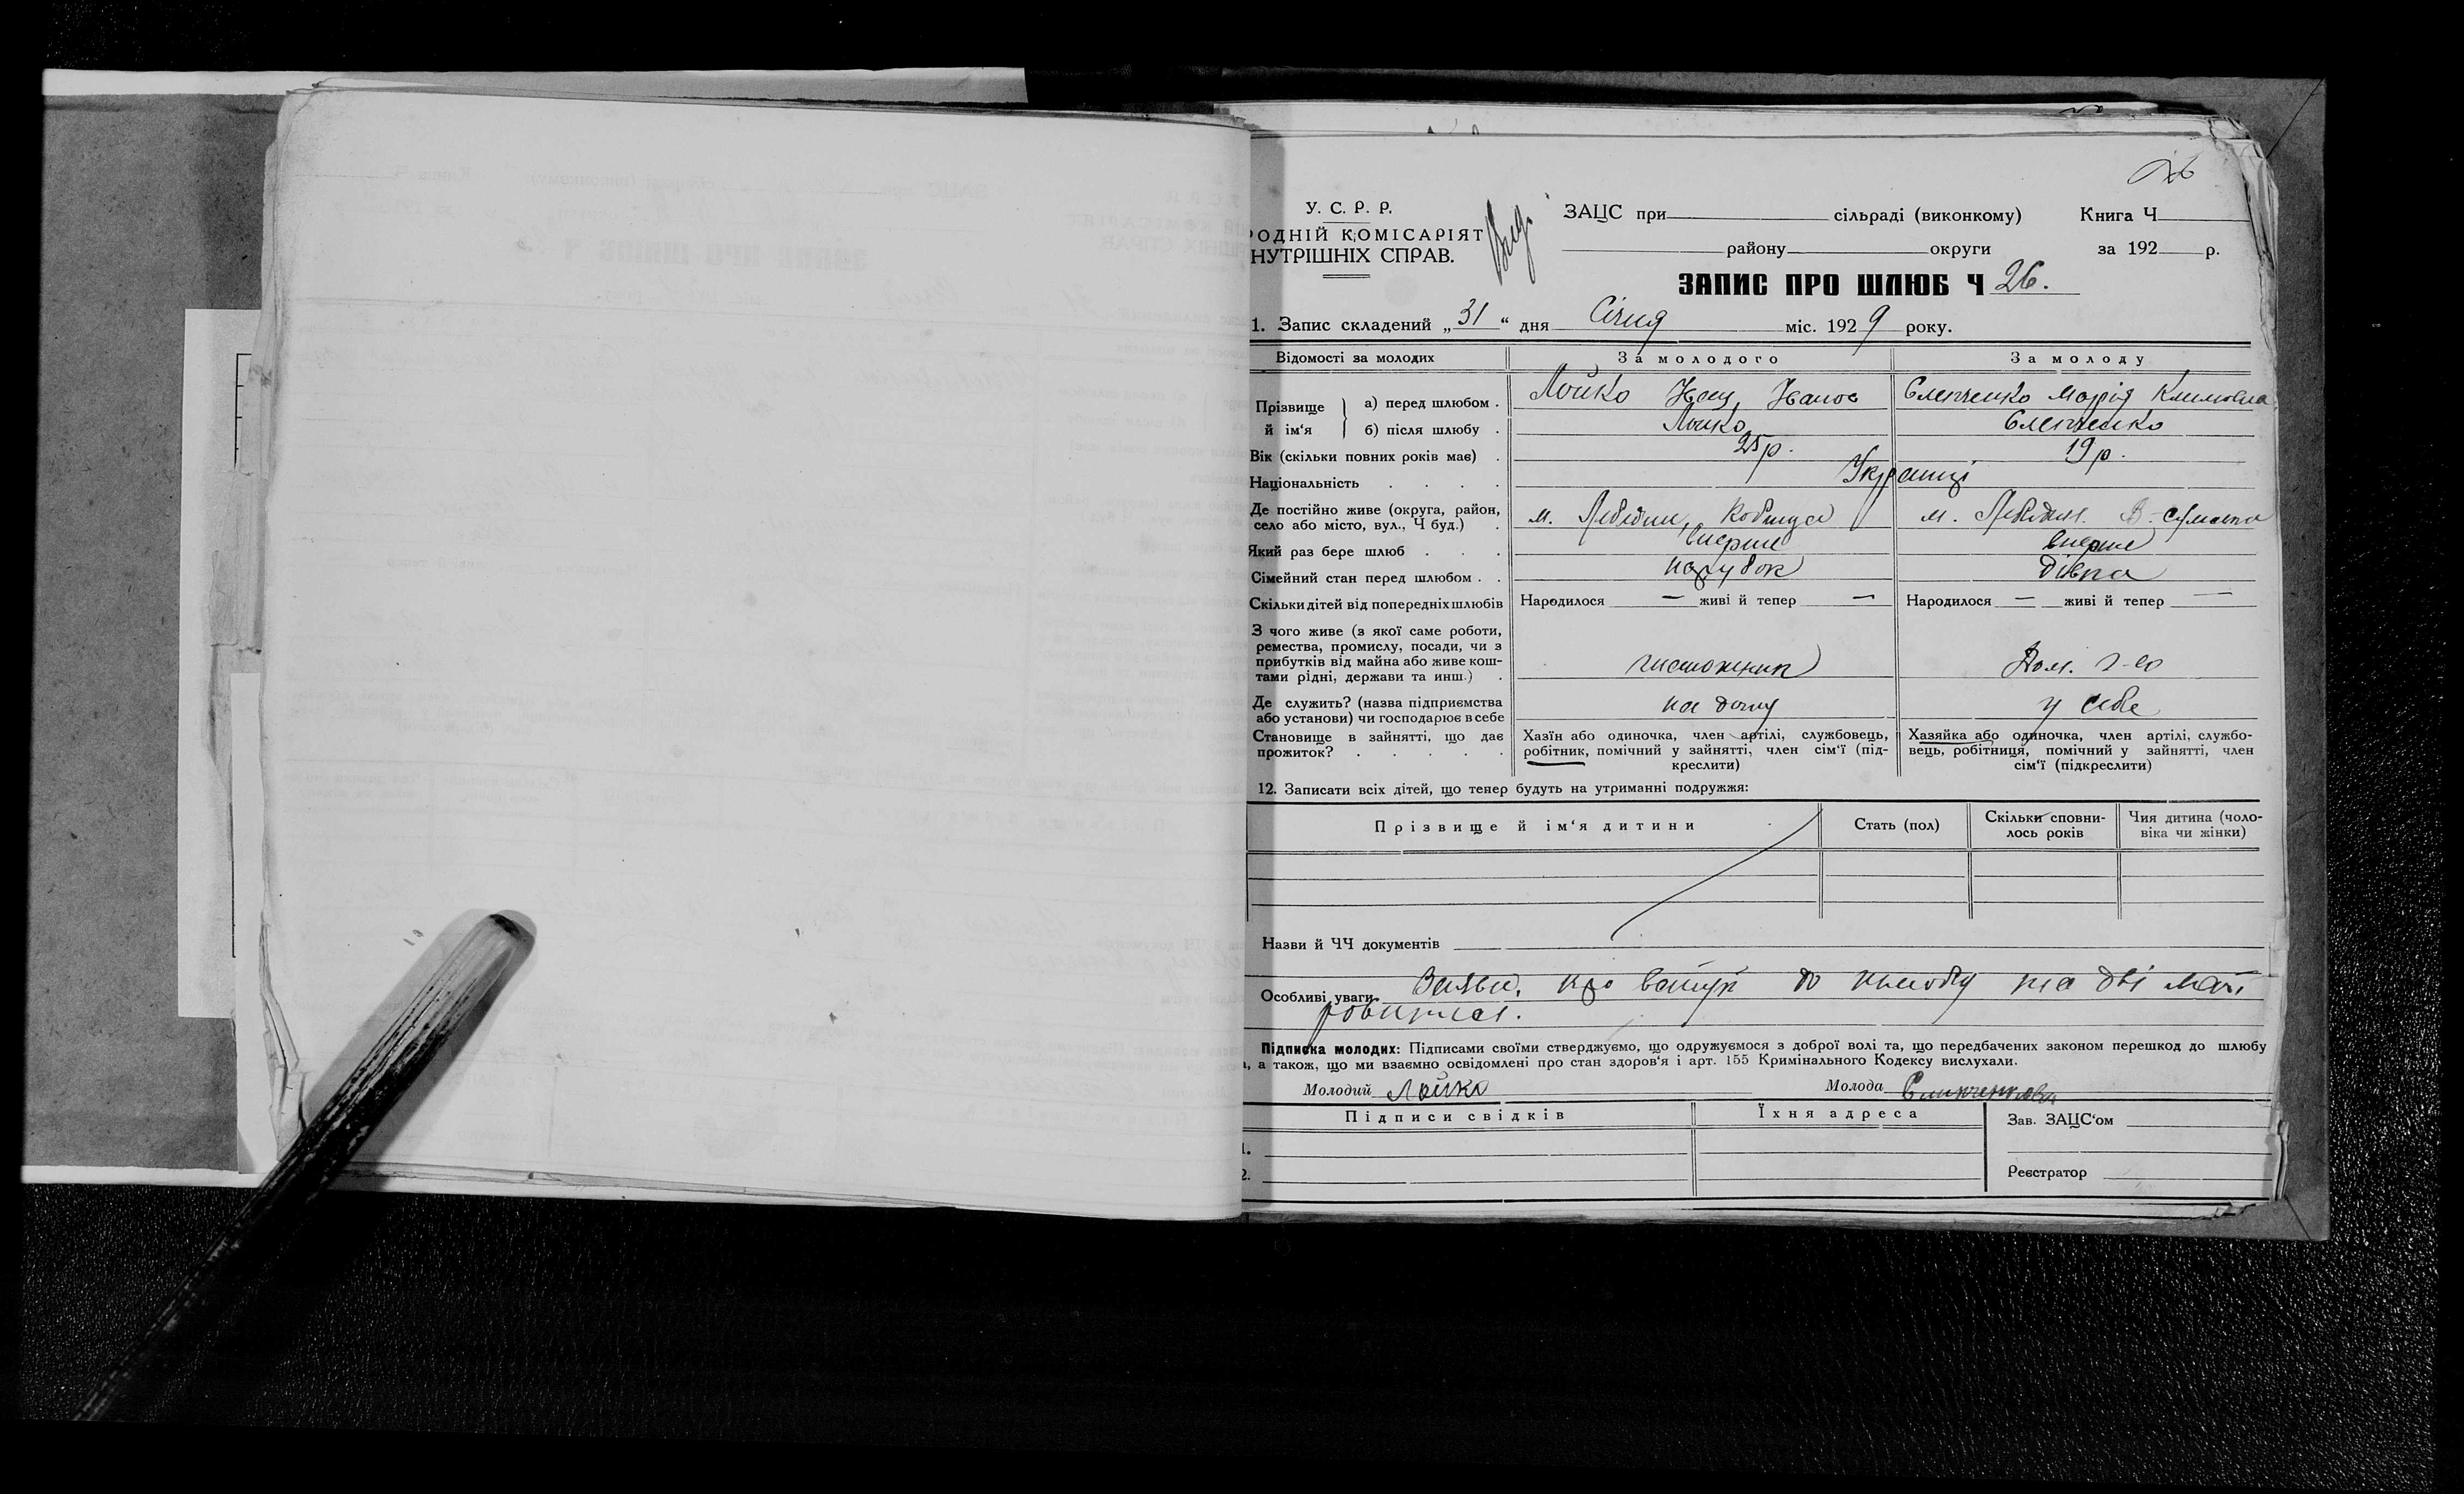 26
У. С. Р. Р.
ОДНІЙ КОМІСАРІЯТ
НУТРІШНІХ СПРАВ.
ЗАЦС при сільраді (виконкому) Книга Ч
району округи за 192 р.
ЗАПИС ПРО ШЛЮБ Ч 26.
1. Запис складений „31“ дня Січня міс. 1929 року.
Відомості за молодих За молодого За молоду
Прізвище й ім‘я а) перед шлюбом . Лойко Іван Єлепченко Марія Климовна
б) після шлюбу . Лойко Єлепченко
Вік (скільки повних років має) . 25 р. 19 р.
Національність . . . . Українці
Де постійно живе (округа, район, село або місто, вул., Ч буд.) . м. Лебедин, м. Лебедин.
Який раз бере шлюб . . . вперше вперше
Сімейний стан перед шлюбом . . парубок дівка
Скільки дітей від попередніх шлюбів Народилося — живі й тепер — Народилося — живі й тепер —
З чого живе (з якої саме роботи,
ремества, промислу, посади, чи з
прибутків від майна або живе кош-
тами рідні, держави та инш.) . Дом. г-во
Де служить? (назва підприємства
або установи) чи господарює в себе на дому у себе
Становище в зайнятті, що дає
прожиток? . . . . .
Хазїн або одиночка, член артілі, службовець,
робітник, помічний у зайнятті, член сім‘ї (під-
креслити)
Хазяйка або одиночка, член артілі, службо-
вець, робітниця, помічний у зайнятті, член
сім‘ї (підкреслити)
12. Записати всіх дітей, що тепер будуть на утриманні подружжя:
Прізвище й ім‘я дитини Стать (пол) Скільки сповни-
лось років Чия дитина (чоло-
віка чи жінки)
Назви й ЧЧ документів
Особливі уваги. Заяви, про вступ до шлюбу на дві
Підписка молодих: Підписами своїми стверджуємо, що одружуємося з доброї волі та, що передбачених законом перешкод до шлюбу
, а також, що ми взаємно освідомлені про стан здоров‘я і арт. 155 Кримінального Кодексу вислухали.
Молодий Лойко Молода
Підписи свідків Їхня адреса Зав. ЗАЦС‘ом
1.
2. Реєстратор